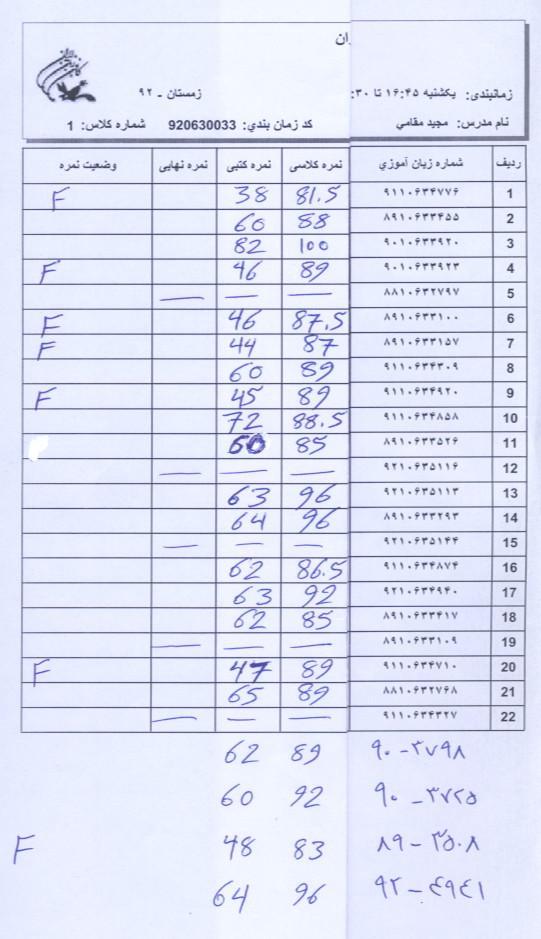 ان
زمانبندی: یکشنبه ۱۶:۴۵ تا ۳۰: زمستان - ۹۲
نام مدرس: مجید مقامي کد زمان بندي: 920630033 شماره کلاس: 1
ردیف شماره زبان آموزي نمره کلاسی نمره کتبی نمره نهایی وضعیت نمره
1 ۹۱۱۰۶۳۴۷۷۶ 81.5 38 F
2 ۸۹۱۰۶۳۳۴۵۵ 88 60
3 ۹۰۱۰۶۳۳۹۲۰ 100 82
4 ۹۰۱۰۶۳۳۹۲۳ 89 46 F
5 ۸۸۱۰۶۳۲۷۹۷ — — —
6 ۸۹۱۰۶۳۳۱۰۰ 87.5 46 F
7 ۸۹۱۰۶۳۳۱۵۷ 87 44 F
8 ۹۱۱۰۶۳۴۳۰۹ 89 60
9 ۹۱۱۰۶۳۴۹۲۰ 89 45 F
10 ۹۱۱۰۶۳۴۸۵۸ 88.5 72
11 ۸۹۱۰۶۳۳۵۲۶ 85 60
12 ۹۲۱۰۶۳۵۱۱۶ — — —
13 ۹۲۱۰۶۳۵۱۱۳ 96 63
14 ۸۹۱۰۶۳۳۲۹۳ 96 64
15 ۹۲۱۰۶۳۵۱۴۴ — — —
16 ۹۱۱۰۶۳۴۸۷۴ 86.5 62
17 ۹۲۱۰۶۳۴۹۴۰ 92 63
18 ۸۹۱۰۶۳۳۴۱۷ 85 62
19 ۸۹۱۰۶۳۳۱۰۹ — — —
20 ۹۱۱۰۶۳۴۷۱۰ 89 47 F
21 ۸۸۱۰۶۳۲۷۶۸ 89 65
22 ۹۱۱۰۶۳۴۳۲۷ — — —
۹۰-۳۷۹۸ 89 62
۹۰-۳۷۲۵ 92 60
۸۹-۳۵۰۸ 83 48 F
۹۲-۴۹۴۱ 96 64